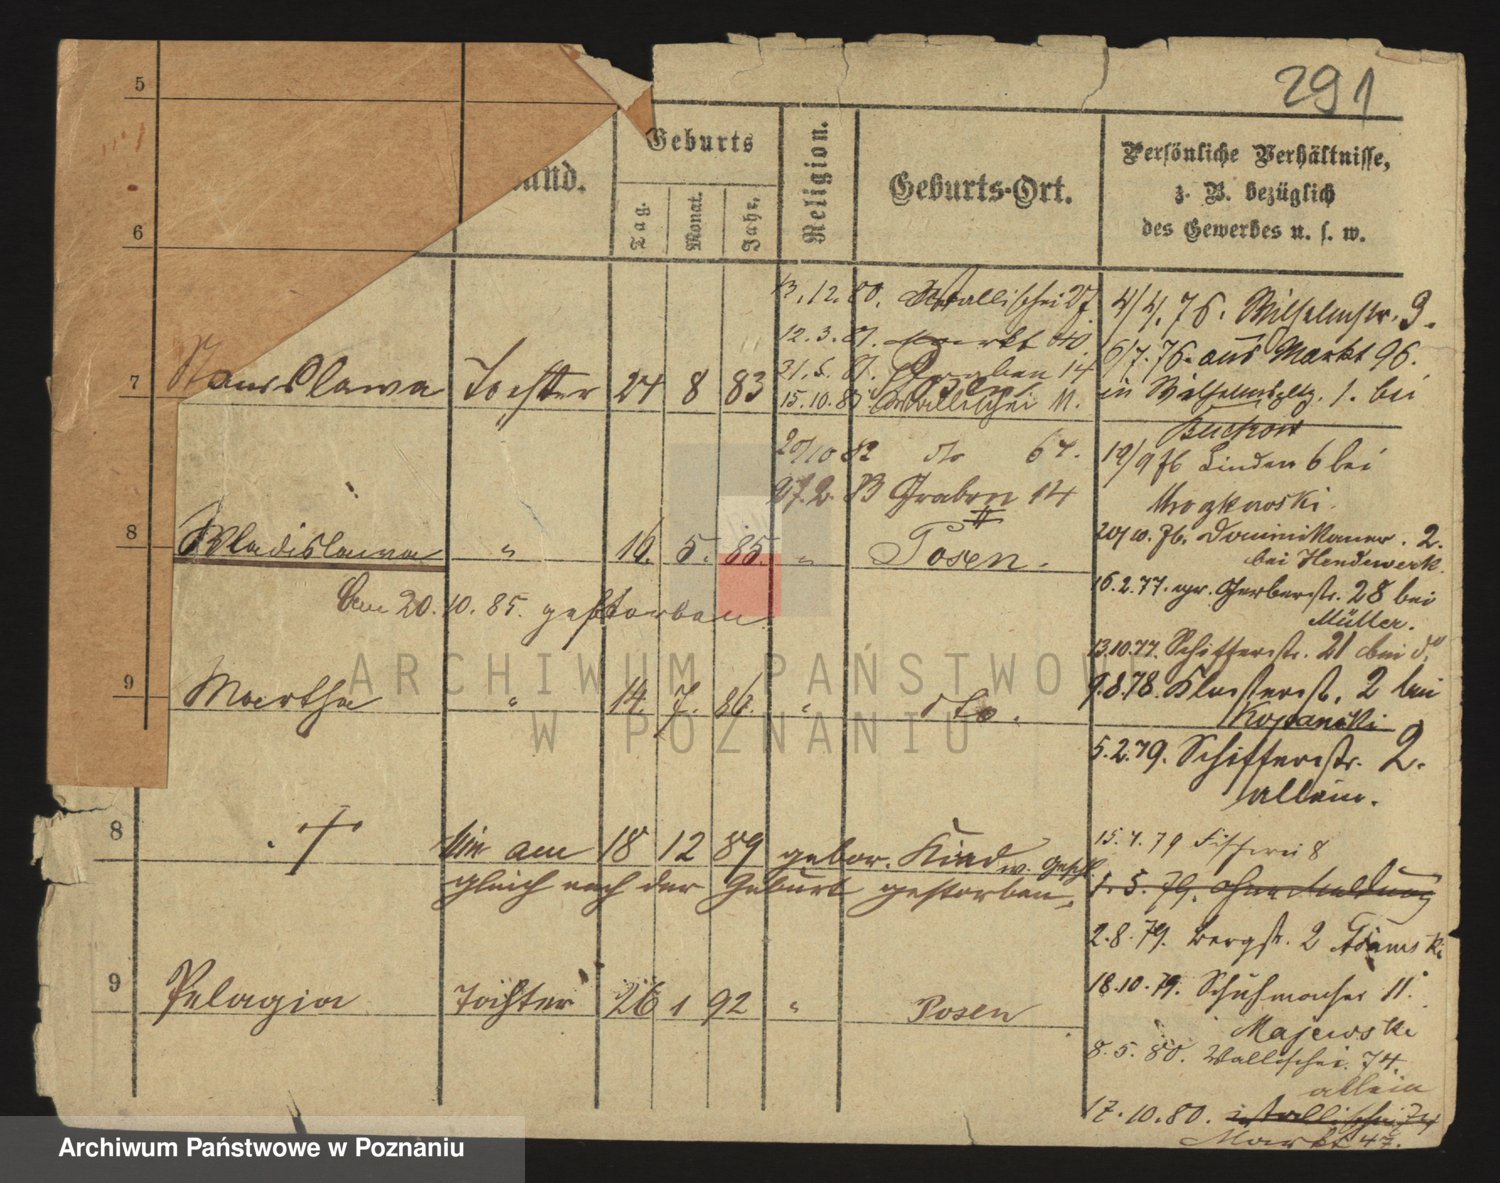 291
5
6
7
8
9
8
9
and.
Geburts
Tag.
Monat.
Jahr.
Religion.
Geburts-Ort.
Persönliche Verhältnisse,
z. B. bezüglich
des Gewerbes u. s. w.
13.12.80. Wallischei 27
12.3.81. Markt 40
31.5.81. Graben 14
Stanislawa Tochter 24 8 83 Posen
15.10.81 Wallischei 11.
29/10 82 dto 67.
27.2.83 Graben 14
II
Wladislawa " 16. 5. 85. " Posen.
Am 20.10.85. gestorben
Martha " 14. 7. 86. " dto.
Ein am 18 12 89 gebor. Kind w. Geschl.
gleich nach der Geburt gestorben.
Pelagia Tochter 26 1 92 " Posen
4/4.76. Wilhelmstr. 9.
6/7.76. aus Markt 96.
in Wilhelmsplatz. 1. bei
Buckow
19/9 76 Linden 6 bei
Mrozkowski.
20/10.76. Dominikaner. 2.
bei Hendewerk.
16.2.77. Gerberstr. 28 bei
Müller.
13.10.77. Schifferstr. 21 bei
9.8.78. Klosterstr. 2 bei
Kopanski
5.2.79. Schifferstr. 2.
allein.
15.4.79 Fischerei 8
1.5.79. ohne Meldung
2.8.79. Bergstr. 2 Adamski
18.10.79. Schuhmacher 11.
Majewski
8.5.80. Wallischei 74.
allein
17.10.80. Wallischei 74
Markt 47.
ARCHIWUM PAŃSTWOWE
W POZNANIU
Archiwum Państwowe w Poznaniu